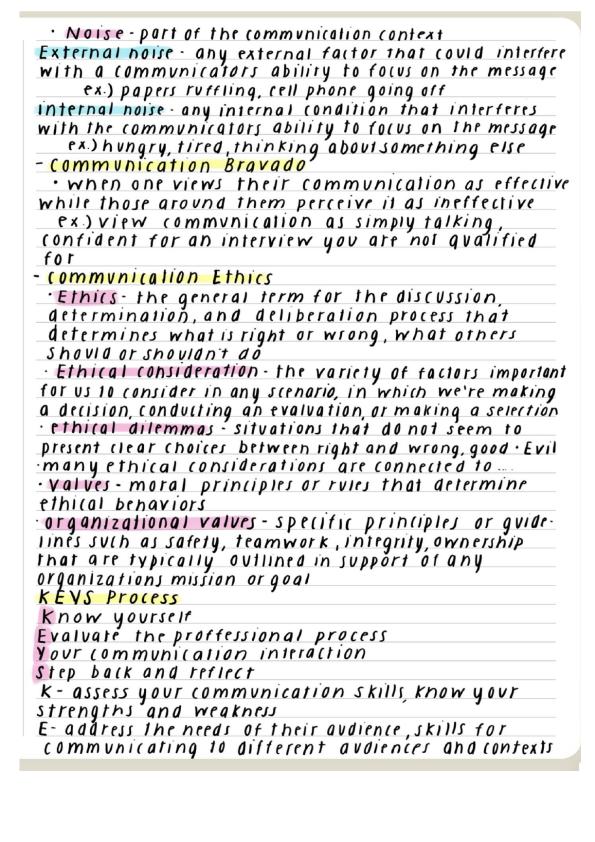 · Noise - part of the communication context
External noise - any external factor that could interfere
with a communicators ability to focus on the message
ex.) papers ruffling, cell phone going off
internal noise - any internal condition that interferes
with the communicators ability to focus on the message
ex.) hungry, tired, thinking about something else
- Communication Bravado
· when one views their communication as effective
while those around them perceive it as ineffective
ex.) view communication as simply talking,
confident for an interview you are not qualified
for
- communication Ethics
· Ethics - the general term for the discussion,
determination, and deliberation process that
determines what is right or wrong, what others
should or shouldn't do
· Ethical consideration - the variety of factors important
for us to consider in any scenario, in which we're making
a decision, conducting an evaluation, or making a selection
· ethical dilemmas - situations that do not seem to
present clear choices between right and wrong, good · Evil
· many ethical considerations are connected to ...
· values - moral principles or rules that determine
ethical behaviors
· organizational values - specific principles or guide-
lines such as safety, teamwork, integrity, ownership
that are typically outlined in support of any
organizations mission or goal
KEYS Process
Know yourself
Evaluate the proffessional process
Your communication interaction
Step back and reflect
K - assess your communication skills, know your
strengths and weakness
E - address the needs of their audience, skills for
communicating to different audiences and contexts